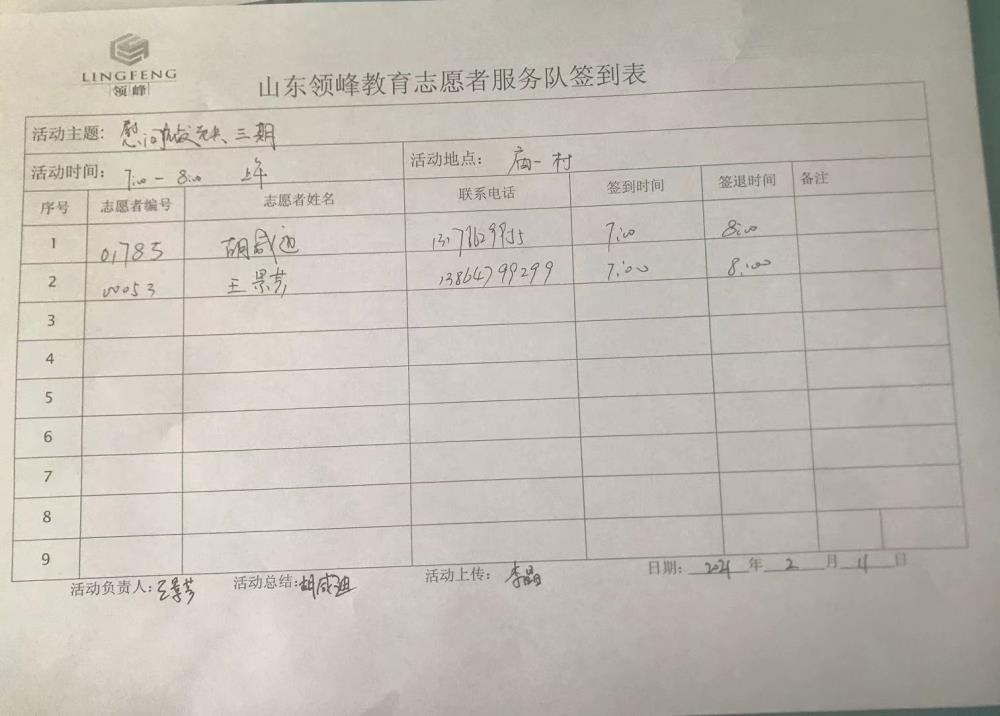 LINGFENG
领峰
山东领峰教育志愿者服务队签到表
活动主题: 慰问 三期
活动时间: 7:00-8:00 上午 活动地点: 庙一村
序号 志愿者编号 志愿者姓名 联系电话 签到时间 签退时间 备注
1 01785 胡咸迪 7:00 8:00
2 00053 王景芳 13864799299 7:00 8:00
3
4
5
6
7
8
9
活动负责人: 王景芳 活动总结: 胡咸迪 活动上传: 李晶 日期: 2021 年 2 月 日